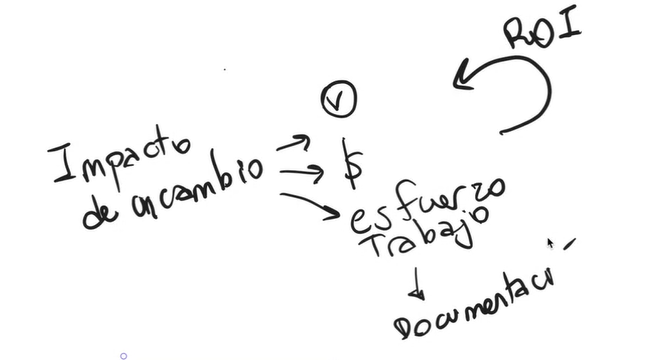 ROI
Impacto
de un cambio
V
$
esfuerzo
Trabajo
Documentaci